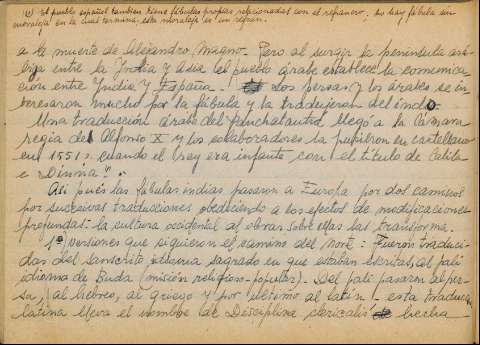 (1) El pueblo español también tiene fábulas propias relacionadas con el refranero, no hay fábula sin
moraleja en la cual termina, esta moraleja es un refrán.
a la muerte de Alexandro Magno. Pero al surgir la península ará
biga entre la India y Asia el pueblo árabe establece la comunica
ción entre India y España. Los persas y los árabes se in
teresaron mucho por la fábula y la tradujeran del indo.
Una traducción árabe del Panchatantra llegó a la Cámara
regia de Alfonso X y los colaboradores la pusieron en castellano
en 1551, cuando el rey era infante con el título de Calila
e Dinna".
Así pues las fábulas indias pasaron a Europa por dos caminos
por sucesivas traducciones obedeciendo a los efectos de modificaciones
profundas - la cultura occidental al obrar sobre ellas las transforma.
1ª versiones que siguieron el camino del norte - Fueron traduci-
das del sanscrito idioma sagrado en que estaban escritas, al pali
idioma de Buda (misión religioso-popular). Del pali pasaron al per-
sa, al hebreo, al griego y por último al latín - esta traducc
latina lleva el nombre de Disciplina clericalis hecha -